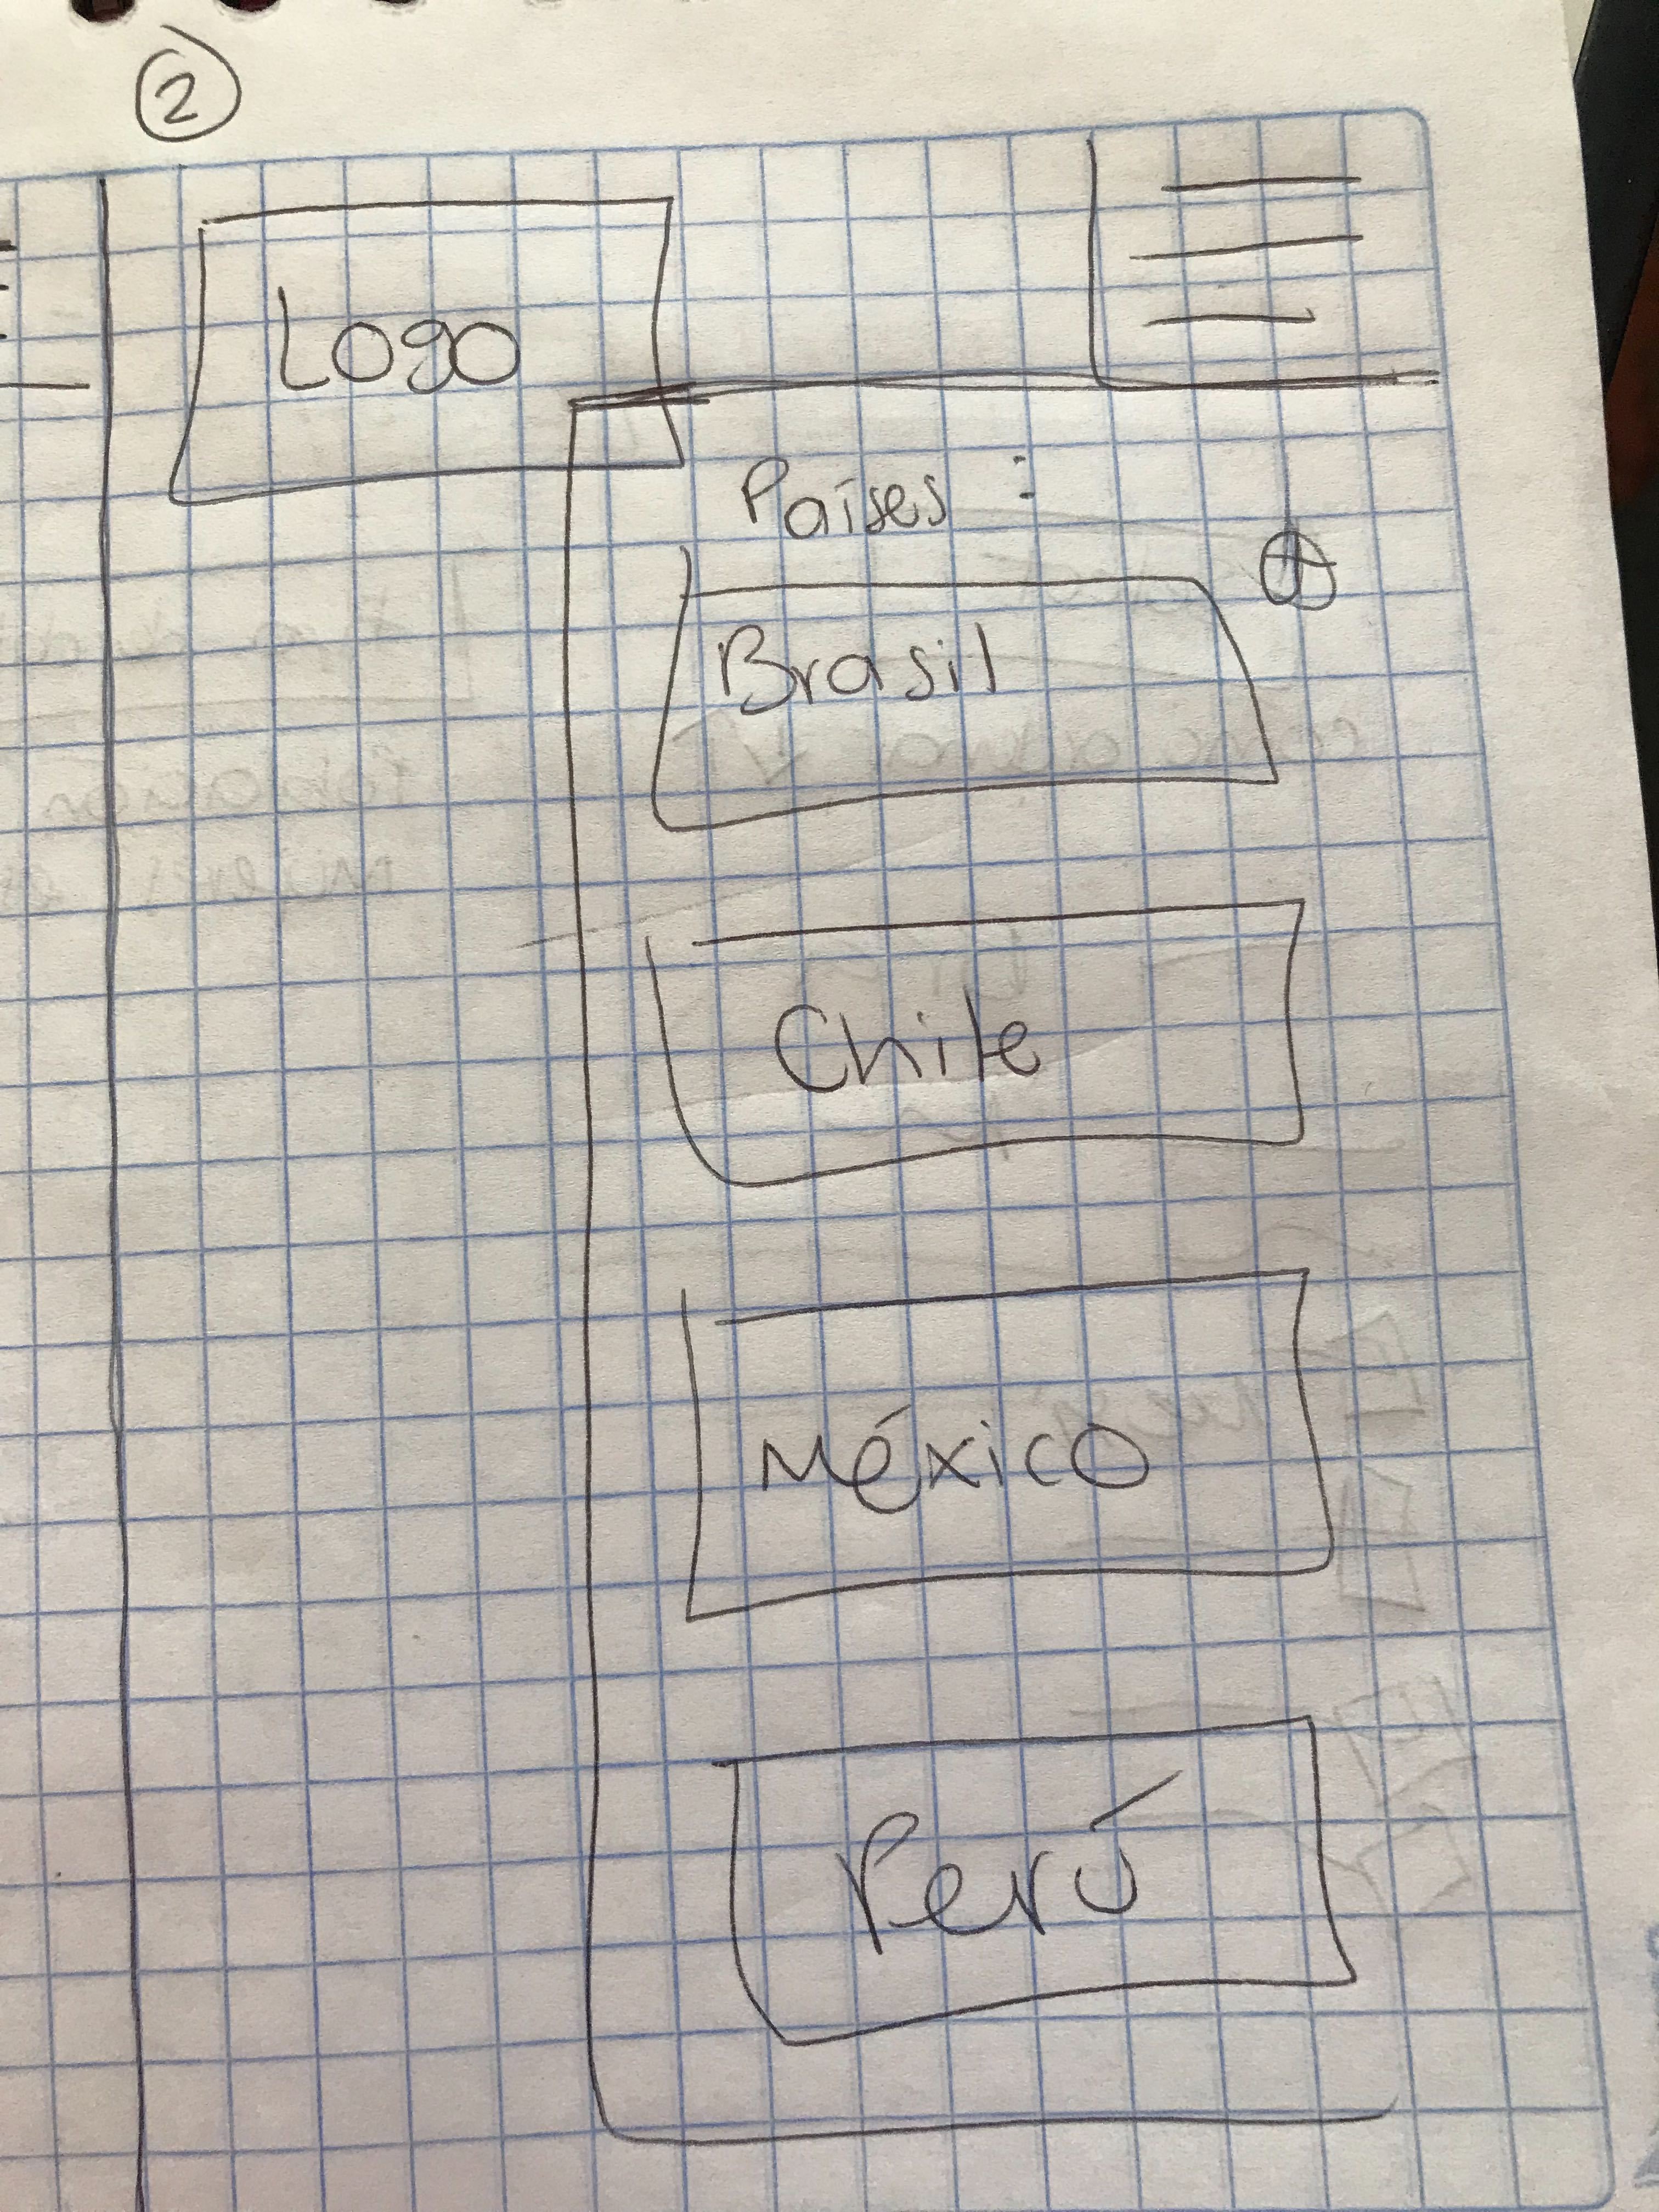 2
Logo
Países :
Brasil
Chile
México
Perú